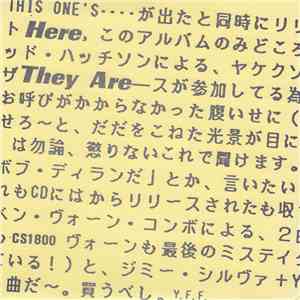 THIS ONE'S‥‥が出たと同時にリリ
ト Here, このアルバムのみどころ
ッド・ハッチソンによる、ヤケクソ
ザ They Areースが参加してる為
お呼びがかからなかった腹いせに(
せろ〜と、だだをこねた光景が目に
は勿論、懲りないこれで聞けます。
ボブ・ディランだ」とか、言いたい
れもCDにはからリリースされたも収
ベン・ヴォーン・コンボによる、2曲
も CS1800 ヴォーンも最後のミスティ
ている!)と、ジミー・シルヴァ+Y
曲だ〜。買うべし。Y.F.F.